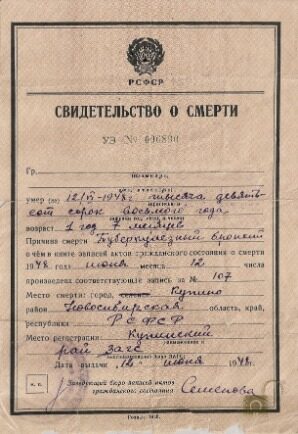 РСФСР
СВИДЕТЕЛЬСТВО О СМЕРТИ
УЭ № 0
Гр.
умер (ла) 12/VI-1948г тысяча девять-
сот сорок восьмого года
возраст 1 год 7 месяцев
Причина смерти Туберкулезный бронхит
о чём в книге записей актов гражданского состояния о смерти
1948 года июня месяца 12 числа
произведена соответствующая запись за № 107
Место смерти: город, селение Купино
район Новосибирская область, край,
республика РСФСР
Место регистрации: Купинский
рай загс
Дата выдачи 12 июня 1948г.
М. П.
Заведующий бюро записей актов
гражданского состояния Семенова